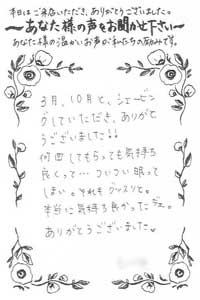 本日はご来店いただき、ありがとうございました。
〜あなた様の声をお聞かせ下さい〜
あなた様の温かいお声が私たちの励みです。
3月、10月と、シェービン
グしていただき、ありがと
うございました!!
何回してもらっても気持ち
良くって…ついつい眠って
しまい。それもグッスリと。
本当に気持ち良かったデェ。
ありがとうございました